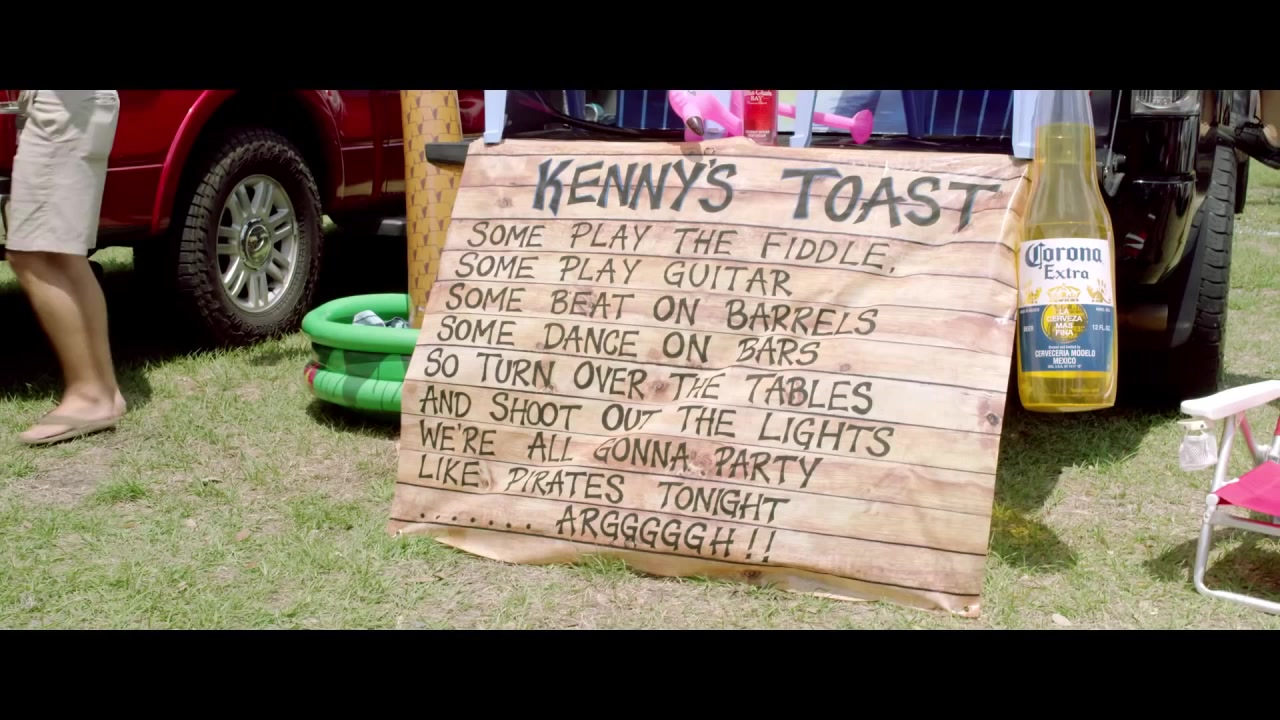 KENNY'S TOAST
SOME PLAY THE FIDDLE,
SOME PLAY GUITAR
SOME BEAT ON BARRELS
SOME DANCE ON BARS
SO TURN OVER THE TABLES
AND SHOOT OUT THE LIGHTS
WE'RE ALL GONNA PARTY
LIKE PIRATES TONIGHT
...... ARGGGGGH!!
Corona
Extra
LA
CERVEZA
MAS
FINA
BEER
12 FL. OZ.
CERVECERIA MODELO
MEXICO
BAY